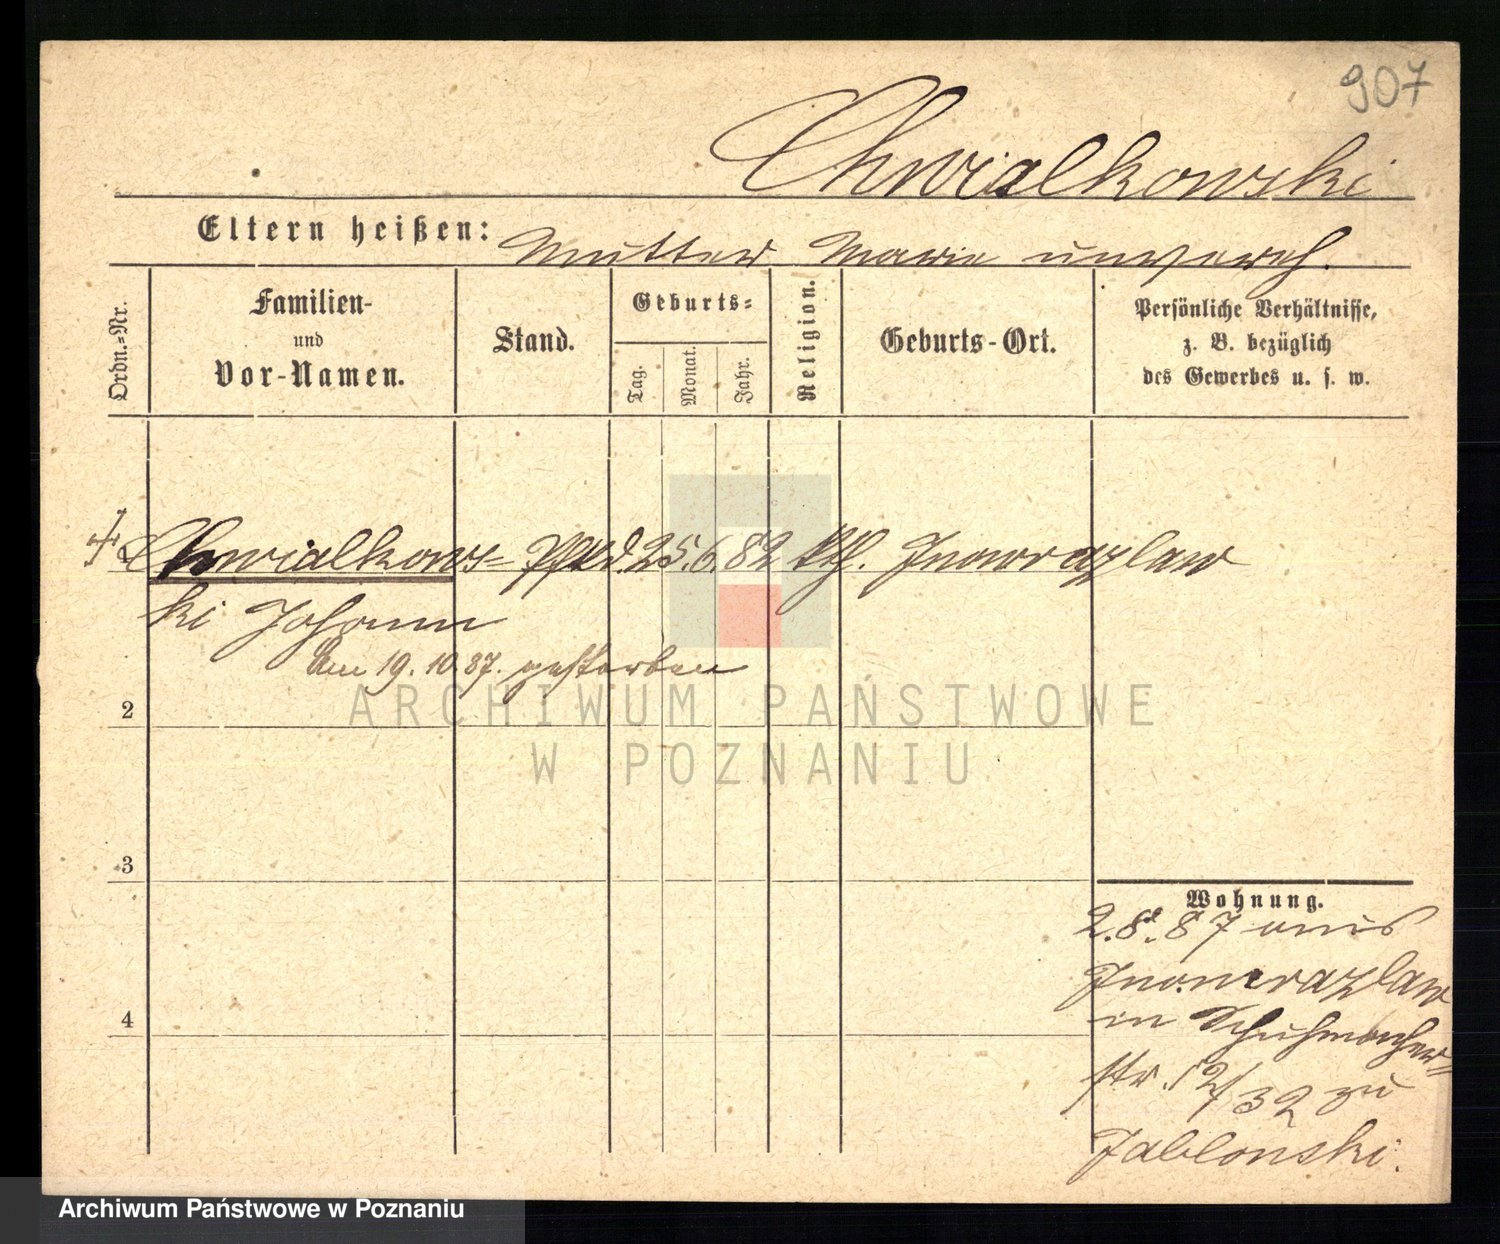 907
Chwialkowski
Eltern heißen: Mutter Marie unvereh.
Ordn.=Nr.
Familien-
und
Vor-Namen.
Stand.
Geburts=
Tag.
Monat.
Jahr.
Religion.
Geburts-Ort.
Persönliche Verhältnisse,
z. B. bezüglich
des Gewerbes u. s. w.
Chwialkows= 25. 6. 82 kth. Inowrazlaw
ki Johann
Am 19. 10. 87. gestorben
ARCHIWUM PAŃSTWOWE
2
W POZNANIU
3
Wohnung.
2. 8. 87 aus
Inowrazlaw
4
in Schuhmacher=
str. 12/32 zu
Jablonski.
Archiwum Państwowe w Poznaniu